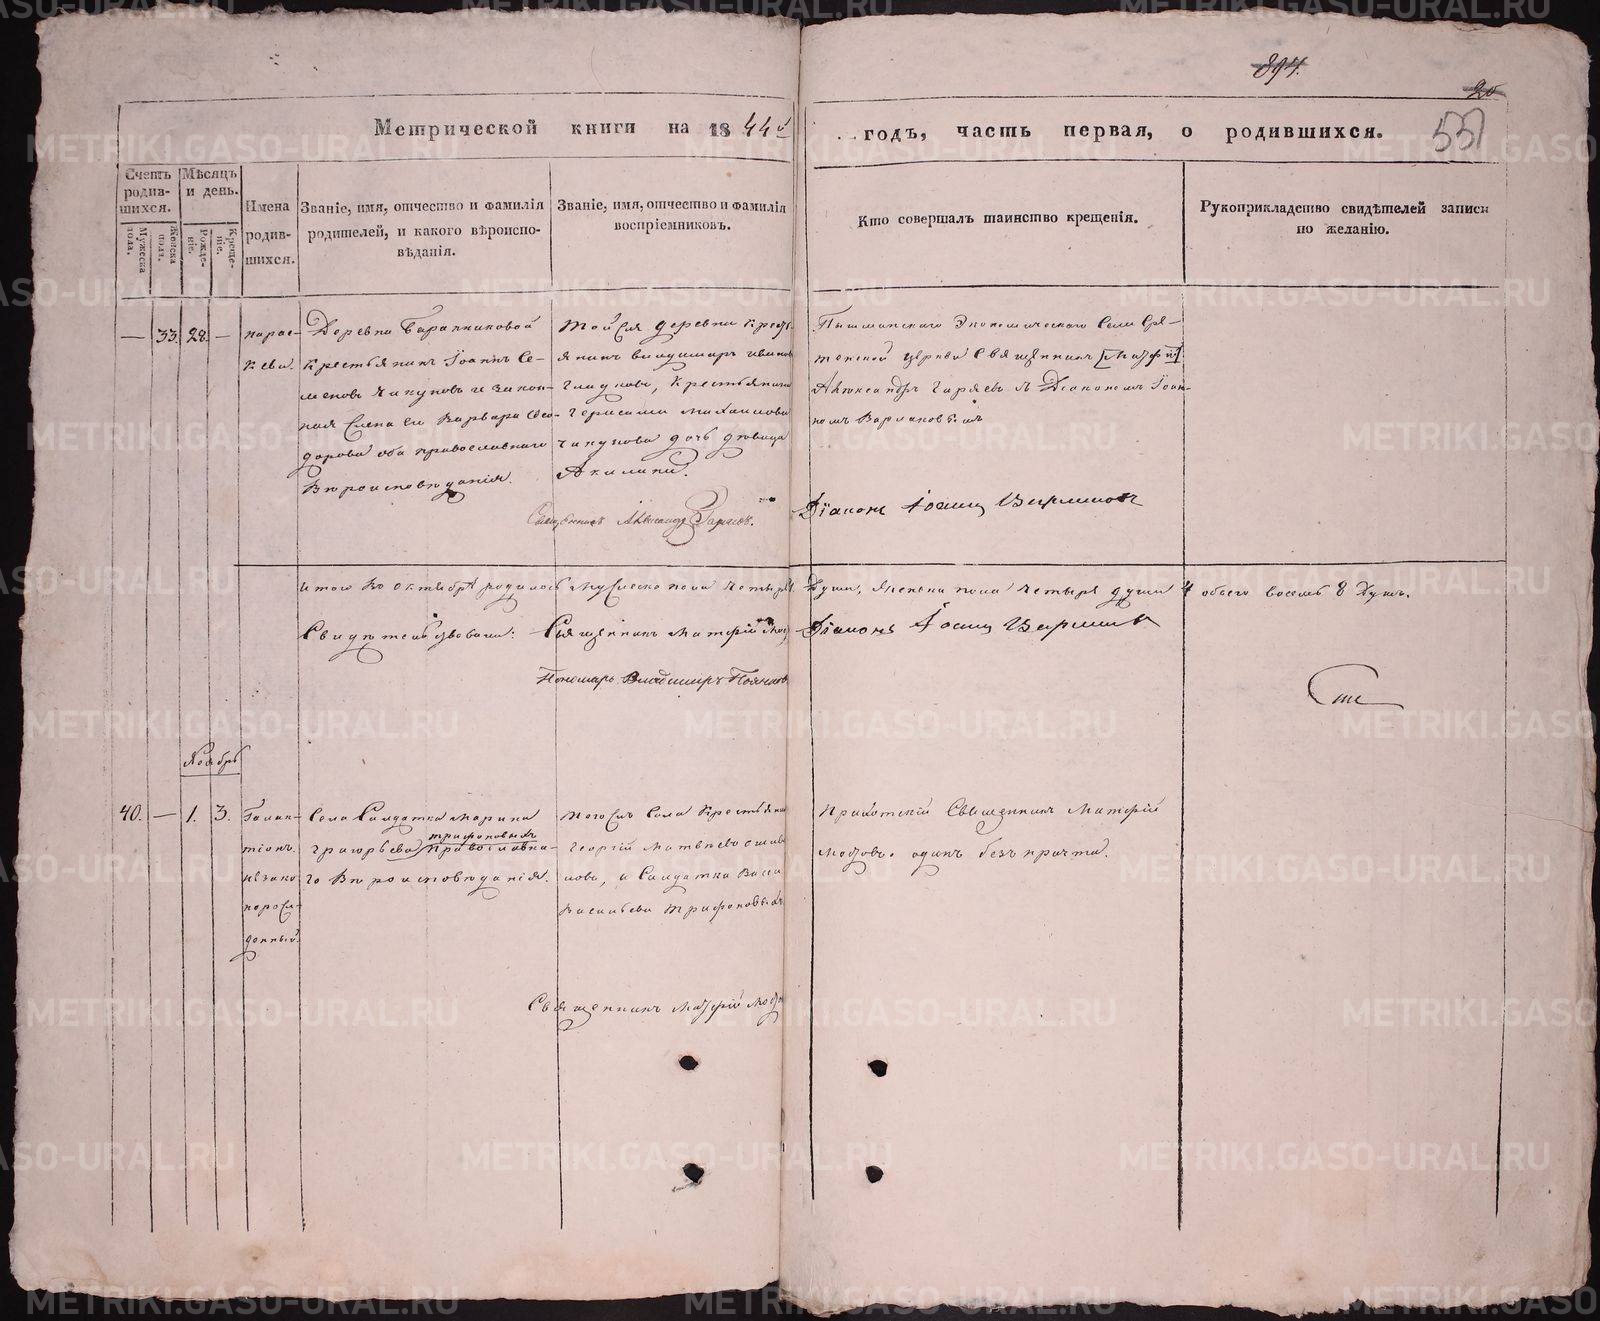 894.
20
557
Метрической книги на 1844й годъ, часть первая, о родившихся.
Счетъ родив-шихся.
Мужеска пола.
Женска пола.
Мѣсяцъ и день.
Рожде-ніе.
Креще-ніе.
Имена родив-шихся.
Званіе, имя, отчество и фамилія
родителей, и какого вѣроиспо-
вѣданія.
Званіе, имя, отчество и фамилія
воспріемниковъ.
Кто совершалъ таинство крещенія.
Рукоприкладство свидѣтелей записи
по желанію.
— 33. 28. —
парас-
кева.
Деревни Баранниковой
Крестьянинъ Іоаннъ Се-
меновъ Чакуновъ и закон-
ная жена его Варвара Ѳео-
дорова оба православнаго
Вѣроисповѣданія.
той же деревни крест
янинъ владимиръ ивановъ
гладковъ, крестьянина
герасима михаилова
чакунова дочь девица
Акилина.
Священникъ Александръ Гаряевъ.
Пышминскаго Экономическаго Села Срѣ-
тенской церкви Священникъ
Александръ Гаряевъ съ Діакономъ Іоан-
номъ
Діаконъ Іоаннъ
итого въ октябрѣ родилось мужеска пола четыре 4 Души, женска пола четыре души 4 обоего восемь 8 Душъ.
Свидетельствовали: Священникъ Матфій Діаконъ Іоаннъ
Пономарь Владимиръ
Ноябрь
40. — 1. 3.
Галак-
тіонъ.
незако
норож-
денный.
Села Солдатка марина
григорьева трифоновыхъ православна-
го Вѣроисповѣданія.
того же Села Крестьянинъ
Георгій Матвѣевъ
новъ, и Солдатка
Васильева трифоновыхъ
Священникъ Матфій
Приходскій Священникъ Матфій
одинъ безъ причта.